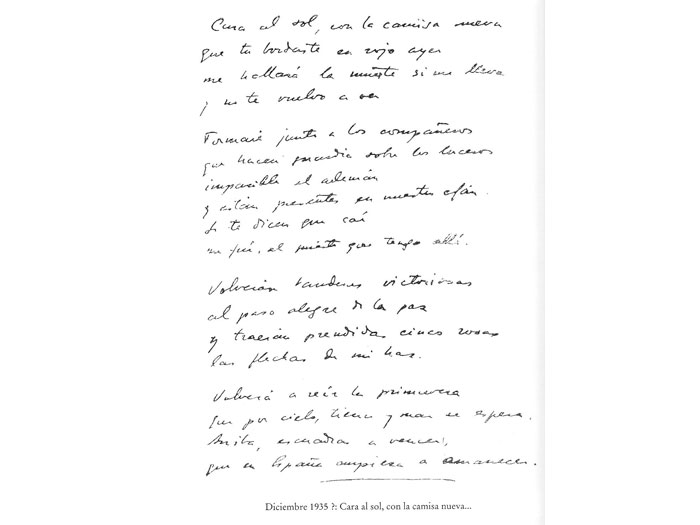 Cara al sol, con la camisa nueva
que tu bordaste en rojo ayer
me hallará la muerte si me lleva
y no te vuelvo a ver
Formaré junto a los compañeros
que hacen guardia sobre los luceros
impasible el ademán
y están presentes en nuestro afán.
Si te dicen que caí
me fuí, al puesto que tengo allí.
Volverán banderas victoriosas
al paso alegre de la paz
y traerán prendidas cinco rosas
las flechas de mi haz.
Volverá a reír la primavera
que por cielo, tierra y mar se espera.
Arriba, escuadras a vencer,
que en España empieza a amanecer.
Diciembre 1935 ?: Cara al sol, con la camisa nueva...